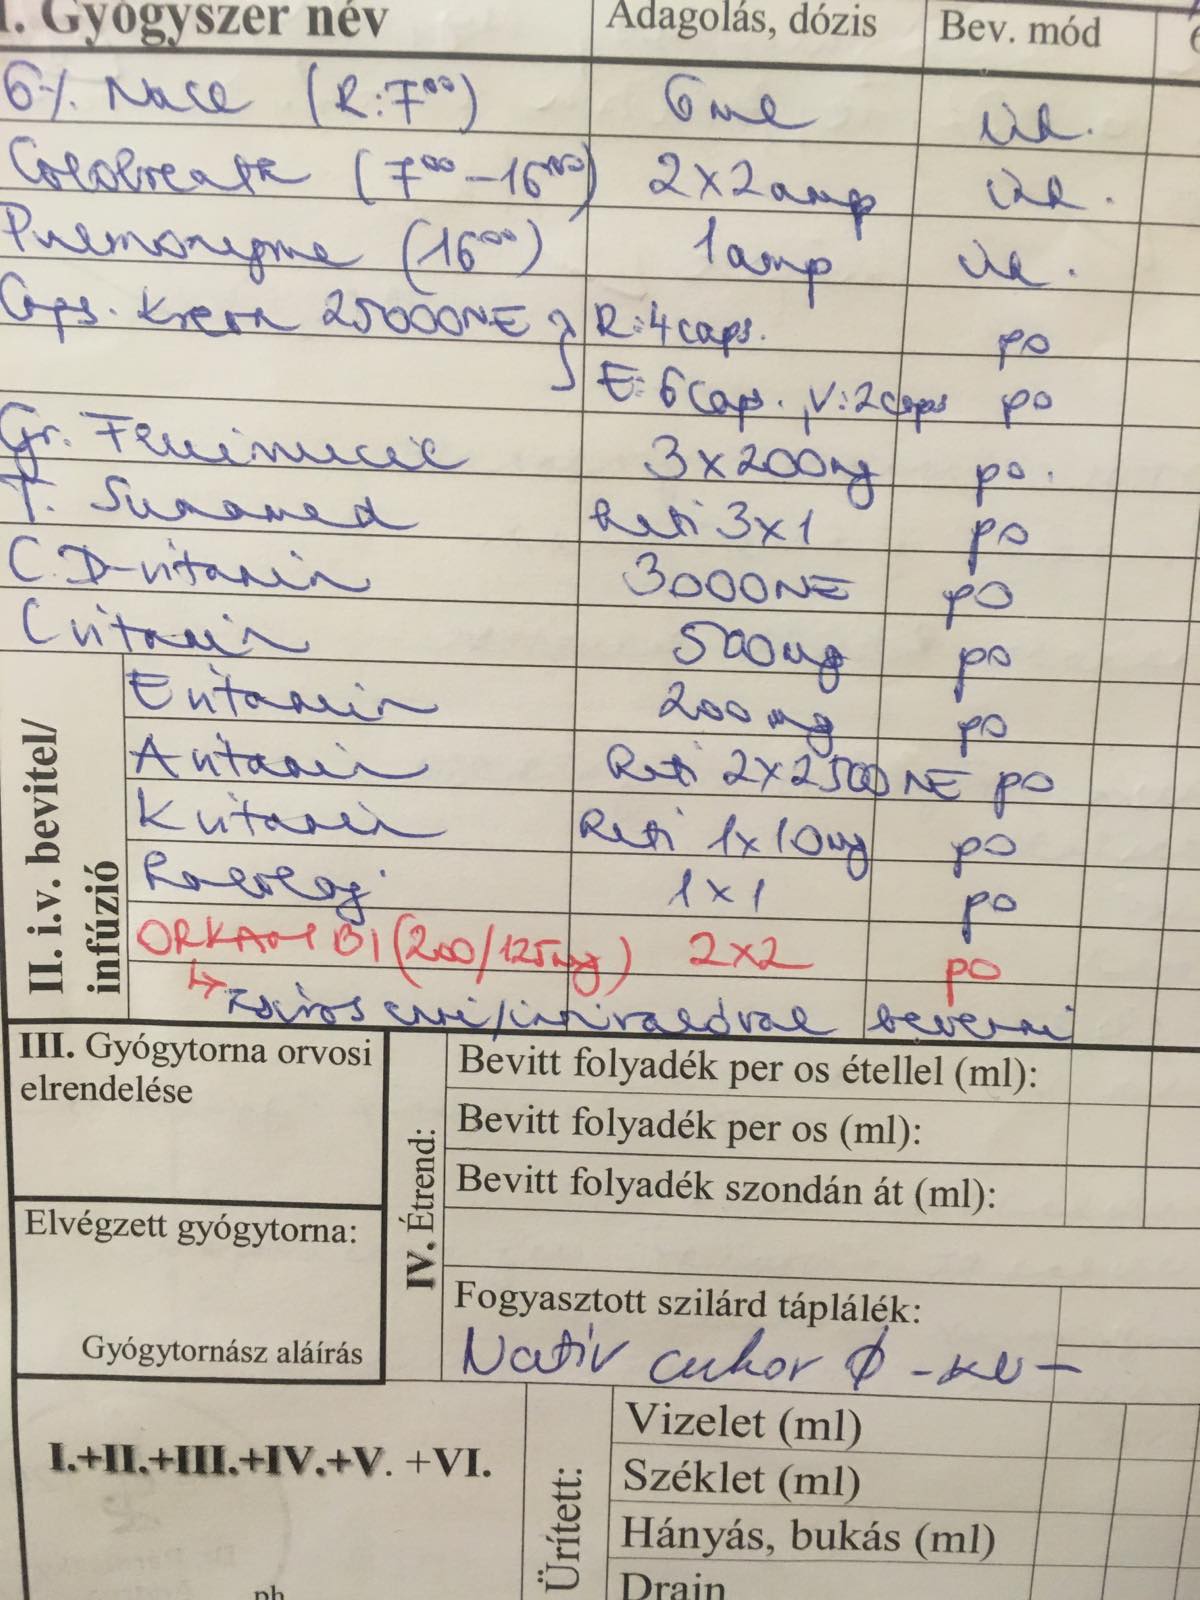 I. Gyógyszer név Adagolás, dózis Bev. mód
6% NaCl (R:7⁰⁰) 6 ml inh.
Colobreath (7⁰⁰-16⁰⁰) 2x2amp inh.
Pulmozyme (16⁰⁰) 1amp inh.
Caps. Kreon 25000NE } R:4caps. po
E: 6caps., V:2caps po
Gr. Fluimucil 3x200mg po.
T. Sumamed Heti 3x1 po
C. D-vitamin 3000NE po
C vitamin 500mg po
II. i.v. bevitel/
infúzió
E vitamin 200mg po
A vitamin Heti 2x2500NE po
K vitamin Heti 1x10mg po
1x1 po
ORKAMBI (200/125mg) 2x2 po
↳ zsíros bevenni
III. Gyógytorna orvosi
elrendelése
Elvégzett gyógytorna:
Gyógytornász aláírás
IV. Étrend:
Bevitt folyadék per os étellel (ml):
Bevitt folyadék per os (ml):
Bevitt folyadék szondán át (ml):
Fogyasztott szilárd táplálék:
Natív cukor ∅
I.+II.+III.+IV.+V. +VI.
ph
Ürített:
Vizelet (ml)
Széklet (ml)
Hányás, bukás (ml)
Drain